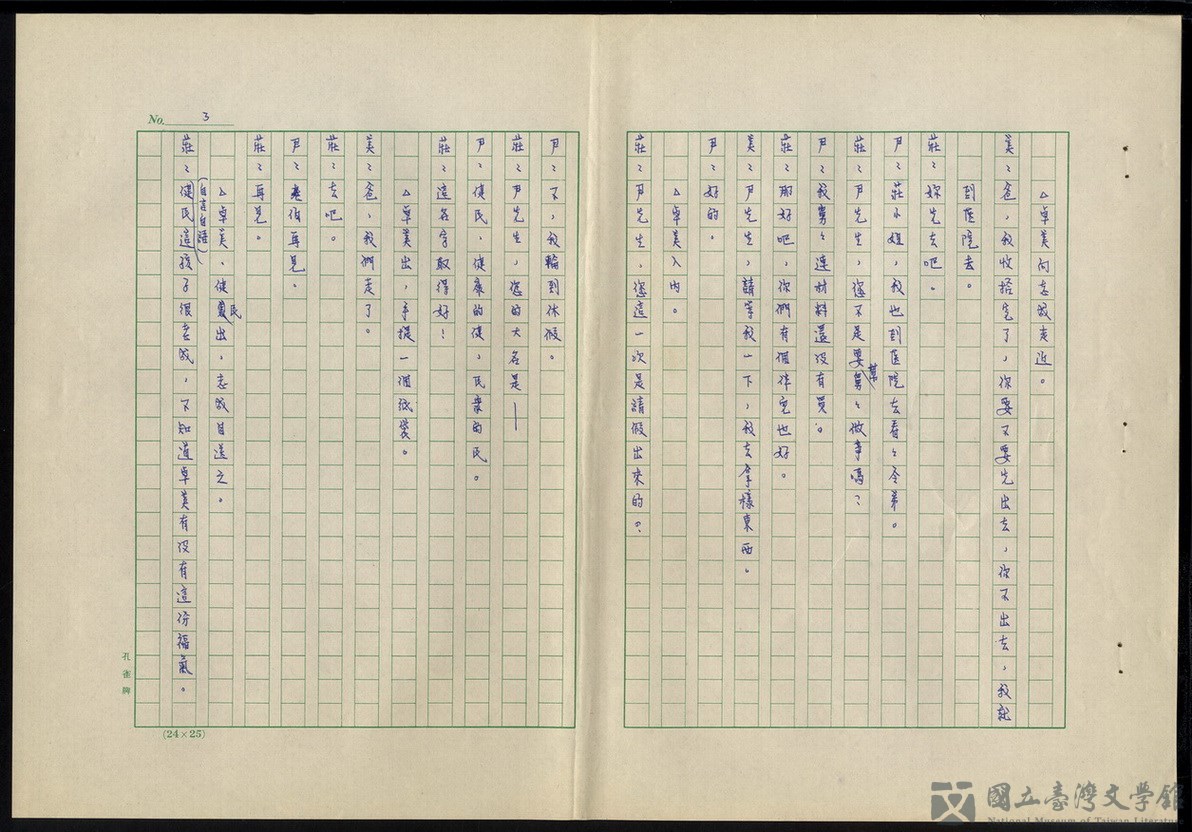 △卓美向志成走近。
美：爸，我收拾完了，你要不要先出去，你不出去，我就
到醫院去。
莊：妳先去吧。
尹：莊小姐，我也到醫院去看看令弟。
莊：尹先生，您不是要幫舅舅做事嗎？
尹：我舅舅連材料還沒有買。
莊：那好吧，你們有個伴兒也好。
美：尹先生，請等我一下，我去拿樣東西。
尹：好的。
△卓美入內。
莊：尹先生，您這一次是請假出來的？
尹：不，我輪到休假。
莊：尹先生，您的大名是——
尹：健民，健康的健，民衆的民。
莊：這名字取得好！
△卓美出，手提一個紙袋。
美：爸，我們走了。
莊：去吧。
尹：老伯再見。
莊：再見。
△卓美、健民出，志成目送之。
莊：（自言自語）健民這孩子很老成，不知道卓美有沒有這份福氣。
No. 3
孔雀牌
(24×25)
國立臺灣文學館
National Museum of Taiwan Literature